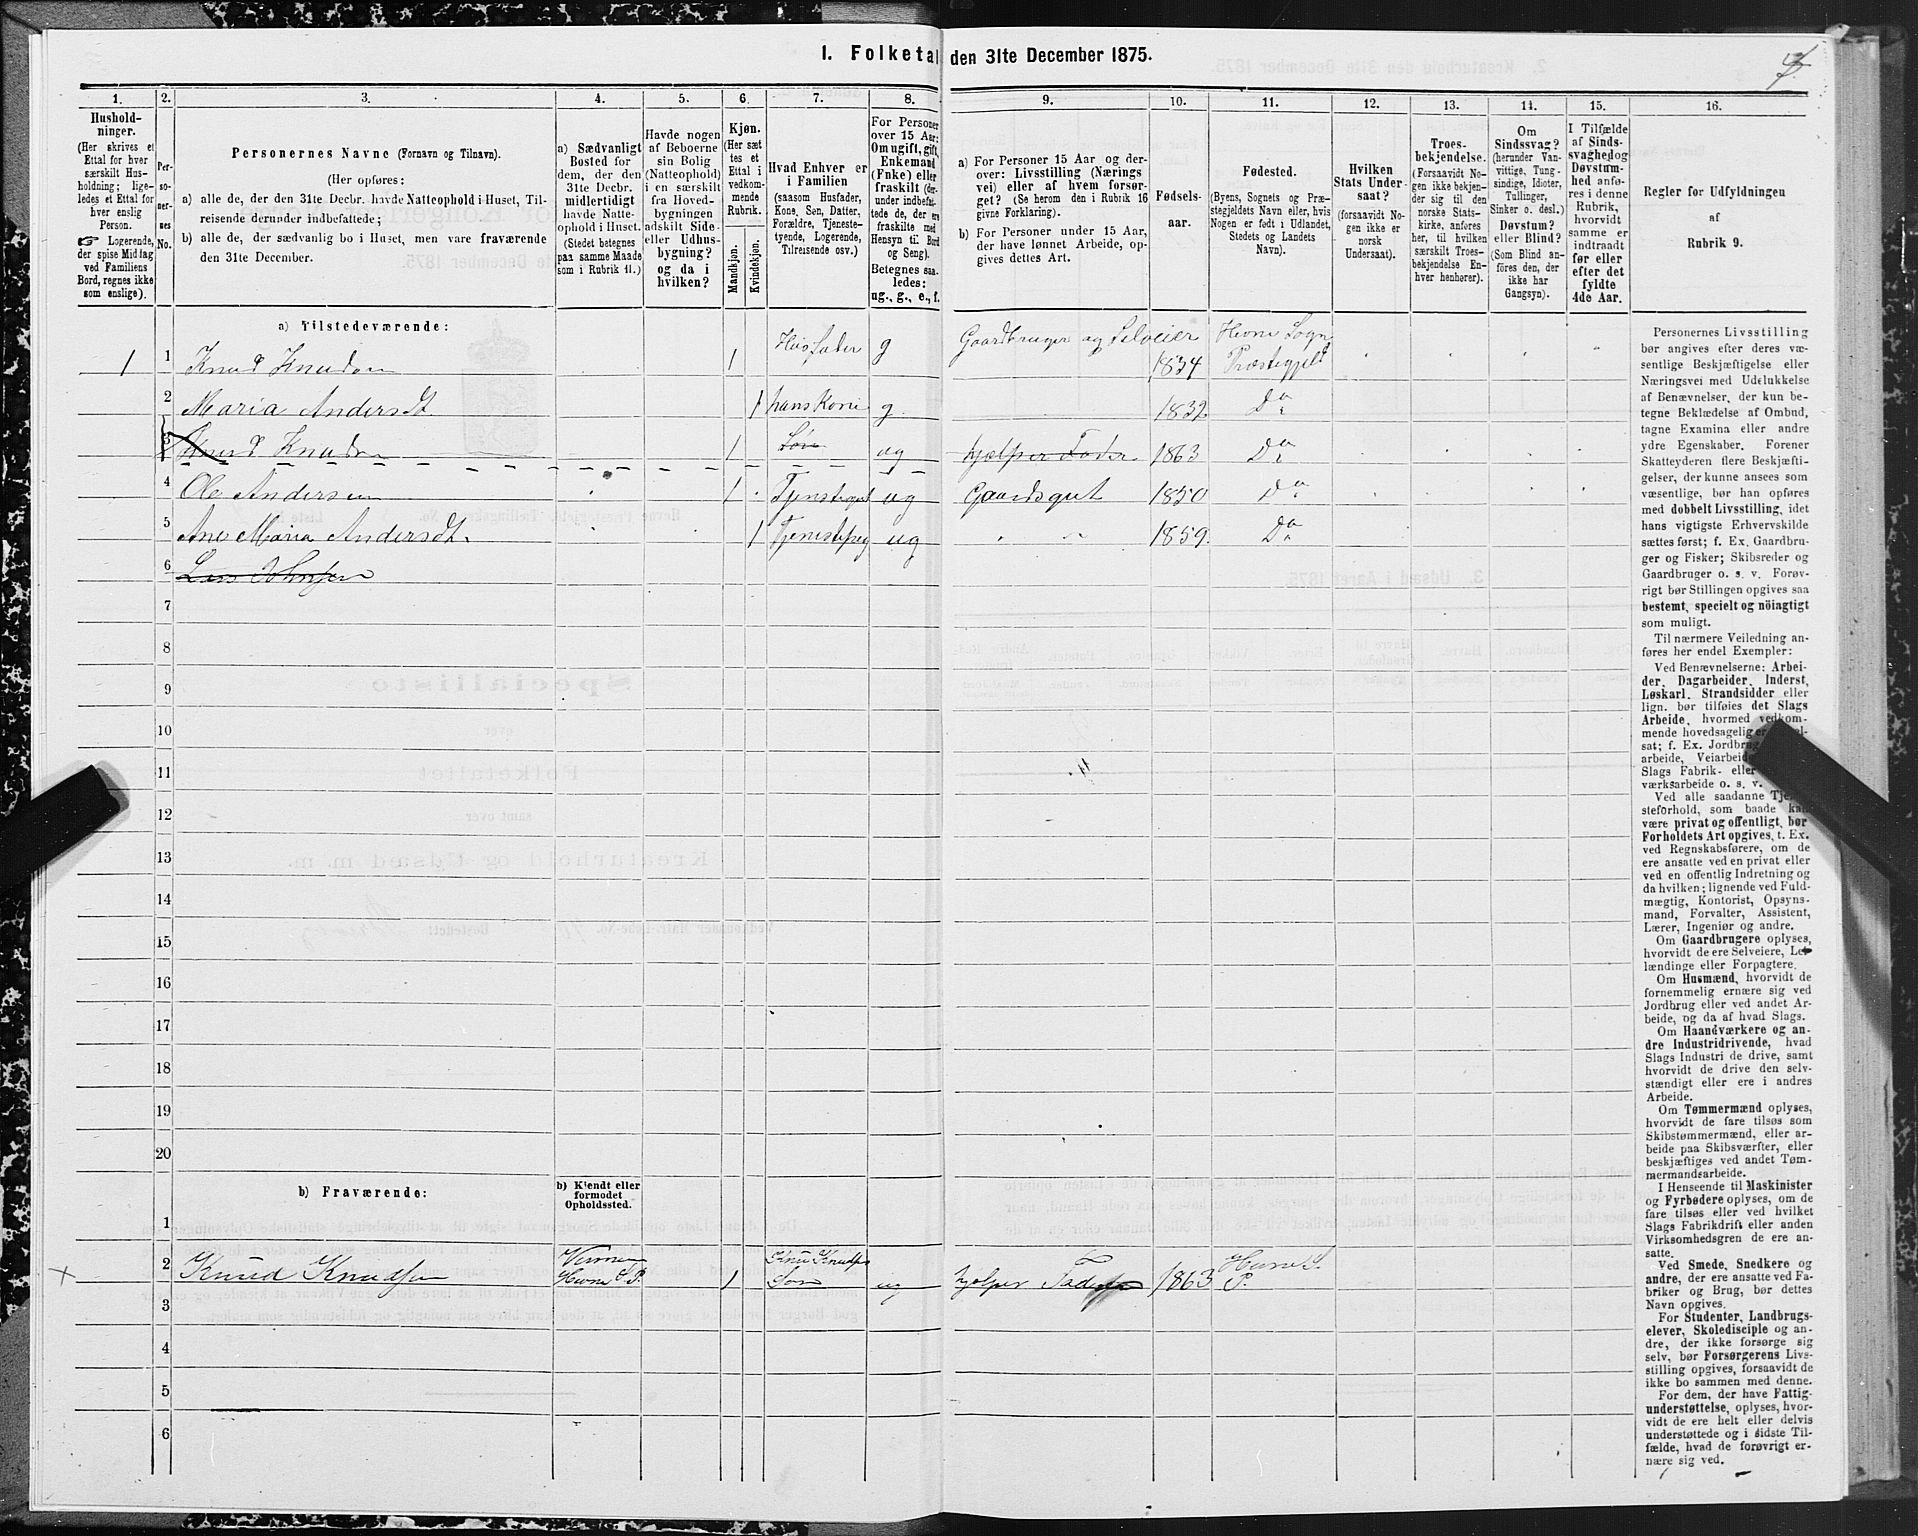 1. Folketal den 31te December 1875.
1. 2. 3. 4. 5. 6. 7. 8. 9. 10. 11. 12. 13. 14. 15. 16.
Hushold-
ninger.
(Her skrives et
Ettal for hver
særskilt Hus-
holdning; lige-
ledes et Ettal for
hver enslig
Person.
☞ Logerende,
der spise Middag
ved Familiens
Bord, regnes ikke
som enslige).
Per-
so-
ner-
nes
No.
Personernes Navne (Fornavn og Tilnavn).
(Her opføres:
a) alle de, der den 31te Decbr. havde Natteophold i Huset, Til-
reisende derunder indbefattede;
b) alle de, der sædvanlig bo i Huset, men vare fraværende
den 31te December.
a) Sædvanligt
Bosted for
dem, der den
31te Decbr.
midlertidigt
havde Natte-
ophold i Huset.
(Stedet betegnes
paa samme Maade
som i Rubrik 11.)
Havde nogen
af Beboerne
sin Bolig
(Natteophold)
i en særskilt
fra Hoved-
bygningen
adskilt Side-
eller Udhus-
bygning?
og da i
hvilken?
Kjøn.
(Her sæt-
tes et
Ettal i
vedkom-
mende
Rubrik.
Mandkjøn.
Kvindekjøn.
Hvad Enhver er
i Familien
(saasom Husfader,
Kone, Søn, Datter,
Forældre, Tjeneste-
tyende, Logerende,
Tilreisende osv.)
For Personer
over 15 Aar:
Om ugift, gift,
Enkemand
(Enke) eller
fraskilt (der-
under indbefat-
tede de, der ere
fraskilte med
Hensyn til Bord
og Seng).
Betegnes saa-
ledes:
ug., g., e., f.
a) For Personer 15 Aar og der-
over: Livsstilling (Nærings-
vei) eller af hvem forsør-
get? (Se herom den i Rubrik 16
givne Forklaring).
b) For Personer under 15 Aar,
der have lønnet Arbeide, op-
gives dettes Art.
Fødsels-
aar.
Fødested.
(Byens, Sognets og Præ-
stegjeldets Navn eller, hvis
Nogen er født i Udlandet,
Stedets og Landets
Navn).
Hvilken
Stats Under-
saat?
(forsaavidt No-
gen ikke er
norsk
Undersaat).
Troes-
bekjendelse.
(Forsaavidt No-
gen ikke bekjen-
der sig til den
norske Stats-
kirke, anføres
her, til hvilken
særskilt Troes-
bekjendelse En-
hver henhører).
Om
Sindssvag?
(herunder Van-
vittige, Tung-
sindige, Idioter,
Tullinger,
Sinker o. desl.)
Døvstum?
eller Blind?
(Som Blind an-
føres den, der
ikke har
Gangsyn).
I Tilfælde
af Sinds-
svaghed og
Døvstum-
hed anfø-
res i denne
Rubrik,
hvorvidt
samme er
indtraadt
før eller
efter det
fyldte
4de Aar.
Regler for Udfyldningen
af
Rubrik 9.
a) Tilstedeværende:
1 1 Knud Knudsen 1 Husfader g Gaardbruger og Selveier 1834 Hevne Sogn Præstegjeld
2 Maria Andersdt 1 hans Kone g 1832 Do
3 Knud Knudsen 1 Søn ug hjælper Fader 1863 Do
4 Ole Andersen 1 Tjenstegut ug Gaardsgut 1850 Do
5 Ane Maria Andersdt. 1 Tjenestepig ug " " 1859 Do
6 Lars Johnsen
7
8
9
10
11
12
13
14
15
16
17
18
19
20
b) Fraværende:
b) Kjendt eller
formodet
Opholdssted.
1
2 Knud Knudsen Hevne S. P. 1 Søn ug hjælper Fader 1863 Hevne S. P.
3
4
5
6
Personernes Livsstilling
bør angives efter deres væ-
sentlige Beskjæftigelse eller
Næringsvei med Udelukkelse
af Benævnelser, der kun be-
tegne Beklædelse af Ombud,
tagne Examina eller andre
ydre Egenskaber. Forener
Skatteyderen flere Beskjæfti-
gelser, der kunne ansees som
væsentlige, bør han opføres
med dobbelt Livsstilling, idet
hans vigtigste Erhvervskilde
sættes først; f. Ex. Gaardbru-
ger og Fisker; Skibsreder og
Gaardbruger o. s. v. Forøv-
rigt bør Stillingen opgives saa
bestemt, specielt og nöiagtigt
som muligt.
Til nærmere Veiledning an-
føres her endel Exempler:
Ved Benævnelserne: Arbei-
der, Dagarbeider, Inderst,
Løskarl, Strandsidder eller
lign. bør tilføies det Slags
Arbeide, hvormed vedkom-
mende hovedsagelig er
sat; f. Ex.
arbeide,
Slags Fabrik- eller
værksarbeide o. s. v.
Ved alle saadanne
steforhold, som baade
være privat og offentligt, bør
Forholdets Art opgives, t. Ex.
ved Regnskabsførere, om de
ere ansatte ved en privat eller
ved en offentlig Indretning og
da hvilken; lignende ved Fuld-
mægtig, Kontorist, Opsyns-
mand, Forvalter, Assistent,
Lærer, Ingeniør og andre.
Om Gaardbrugere oplyses,
hvorvidt de ere Selveiere, Lei-
lændinge eller Forpagtere.
Om Husmænd, hvorvidt de
fornemmelig ernære sig ved
Jordbrug eller ved andet Ar-
beide, og da af hvad Slags.
Om Haandværkere og an-
dre Industridrivende, hvad
Slags Industri de drive, samt
hvorvidt de drive den selv-
stændigt eller ere i andres
Arbeide.
Om Tømmermænd oplyses,
hvorvidt de fare tilsøs som
Skibstømmermænd, eller ar-
beide paa Skibsværfter, eller
beskjæftiges ved andet Tøm-
mermandsarbeide.
I Henseende til Maskinister
og Fyrbødere oplyses, om de
fare tilsøs eller ved hvilket
Slags Fabrikdrift eller anden
Virksomhedsgren de ere an-
satte.
Ved Smede, Snedkere og
andre, der ere ansatte ved Fa-
briker og Brug, bør dettes
Navn opgives.
For Studenter, Landbrugs-
elever, Skoledisciple og an-
dre, der ikke forsørge sig
selv, bør Forsørgerens Livs-
stilling opgives, forsaavidt de
ikke bo sammen med denne.
For dem, der have Fattig-
understøttelse, oplyses, hvor-
vidt de ere helt eller delvis
understøttede og i sidste Til-
fælde, hvad de forøvrigt er-
nære sig ved.